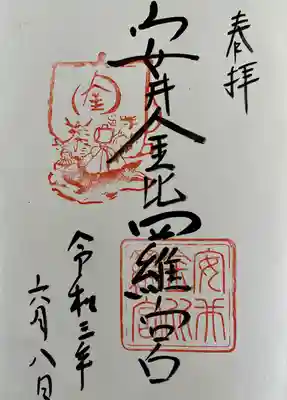 奉拝
安井金比羅宮
令和三年
六月八日
金
安井金比羅宮